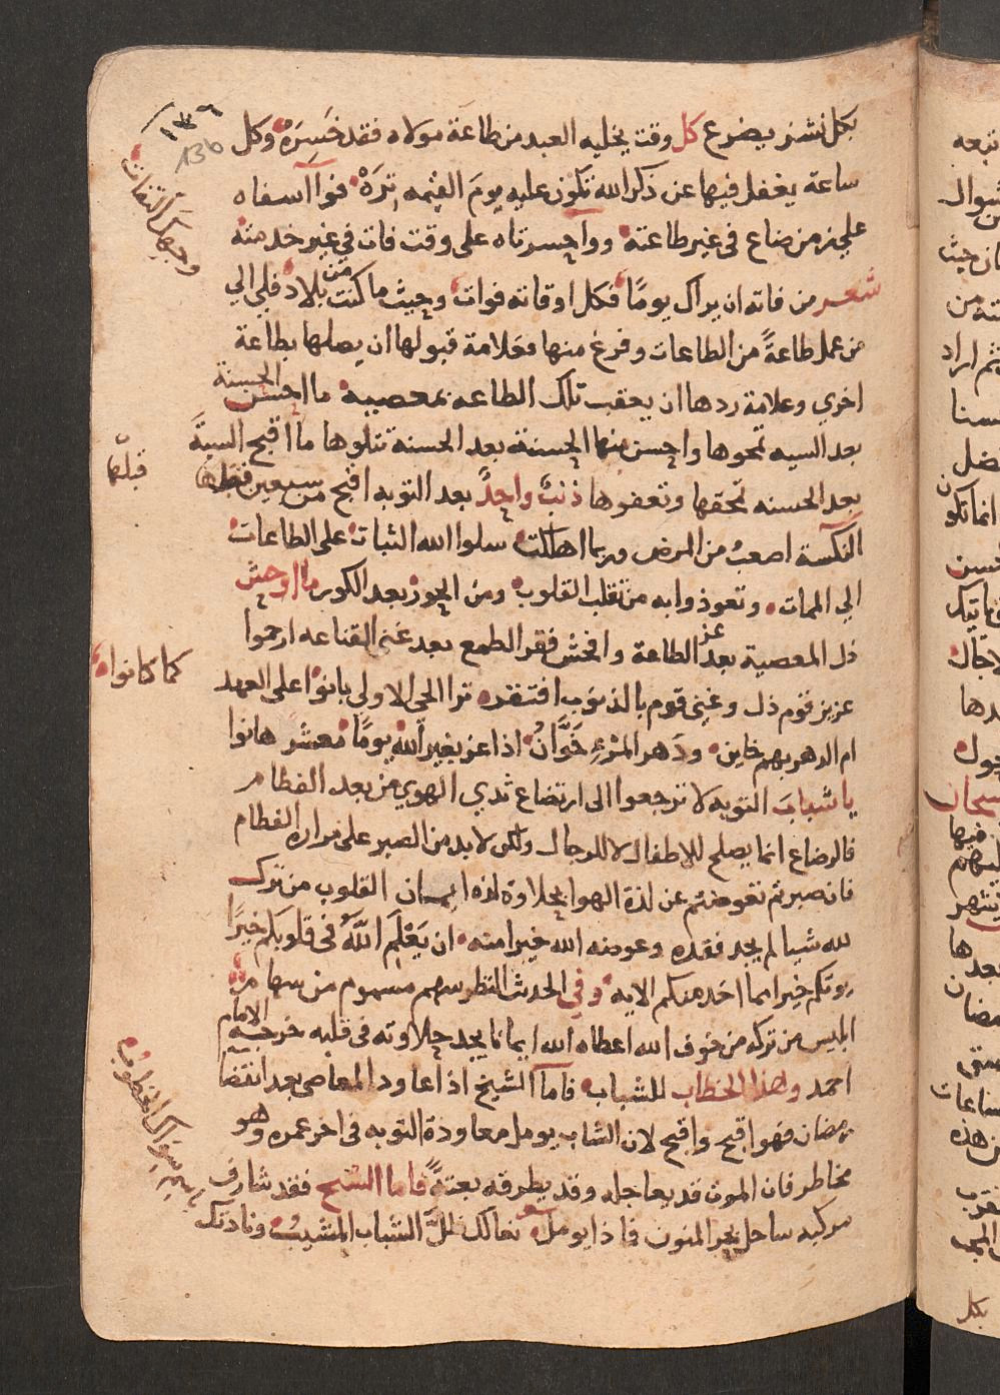 ١٣٦
136
بكل نشر يضوع كل وقت يخليه العبد من طاعة مولاه فقد خسره وكل
ساعة يغفل فيها عن ذكر الله تكون عليه يوم القيمه تره فوا آسفاه
علي زمن ضاع في غير طاعته وواحسرتاه على وقت فات في غير خدمته
شعر من فاته ان يراك يومًا فكل اوقاته فوات وحيث ما كنت من بلاد فلي الي
وجهك التفات
من عمل طاعةً من الطاعات وفرغ منها فعلامة قبولها ان يصلها بطاعة
اخري وعلامة ردها ان يعقب تلك الطاعه بمعصية ما احسن الحسنة
بعد السيه تمحوها واحسن منها الحسنة بعد الحسنة تتلوها ما اقبح السيةَ
بعد الحسنه تمحقها وتعفوها ذنبٌ واحدٌ بعد التوبه اقبح من سبعين
قبلها
النكسة اصعب من المرض وربما اهلكت سلوا الله الثبات على الطاعات
الي الممات وتعوذوا به من تقلب القلوب ومن الحور بعد الكور ما اوحش
ذل المعصية بعد عز الطاعة وافحش فقر الطمع بعد غني القناعه ارحموا
عزيز قوم ذل وغني قوم بالذنوب افتقر ترا الحي الاولي بانوا على العهد
كما كانوا
ام الدهر بهم خاين ودهر المرء خَوَّانُ اذا عز بغير الله يومًا معشر هانوا
يا شباب التوبه لا ترجعوا الى ارتضاع ثدي الهوي من بعد الفطام
فالرضاع انما يصلح للاطفال لا للرجال ولكن لابد من الصبر على مرارة الفطام
فان صبرتم تعوضتم عن لذة الهوا بحلاوة لذه ايمان القلوب من ترك
لله شيا لم يجد فقده وعوضه الله خيرا منه ان يَعْلَم اللَّهُ في قلوبكم خيرًا
يوتكم خيرا مما اخذ منكم الايه وفي الحديث النظر سهم مسموم من سهام
ابليس من تركه من خوف الله اعطاه الله ايمانا يجد حلاوته في قلبه خرجه الامام
احمد وهذا الخطاب للشباب فاما الشيخ اذا عاود المعاصى بعد انقضا
رمضان فهو اقبح واقبح لان الشاب يومل معاودة التوبه في اخر عمره وهو
مخاطر فان الموت قد يعاجله وقد يطرقه بغتةً فاما الشيخ فقد شارف
مركبه ساحل بحر المنون فاذا يومل شعر نعا لك ظلَّ الشباب المشيب ونادتك
باسم سواك الخطوب